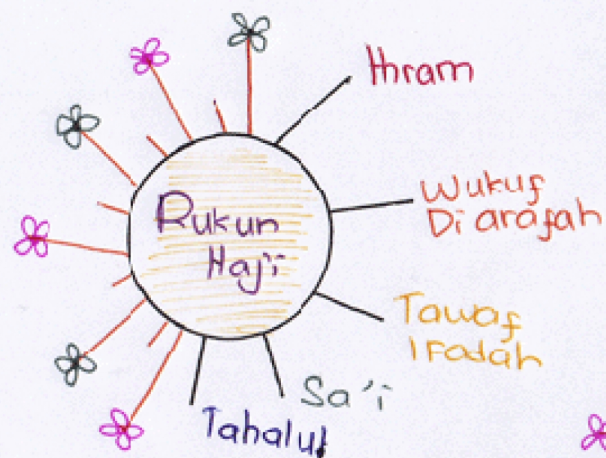 Rukun
Haji
Ihram
Wukuf
Di arafah
Tawaf
Ifadah
Sa'i
Tahalul